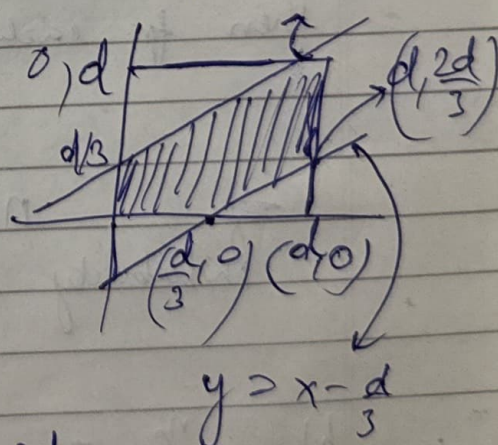 0, d
(d, 2d/3)
d/3
(d/3, 0) (d, 0)
y = x - d/3